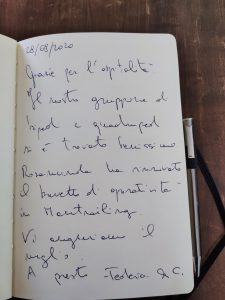 28/08/2020
Grazie per l'ospitalità
Il nostro gruppone di
biped e quadruped
si è trovato benissimo
Rosamunda ha rinnovato
il brevetto di operatività
in Mantrailing.
Vi auguriamo il
meglio
A presto - Federica & C.